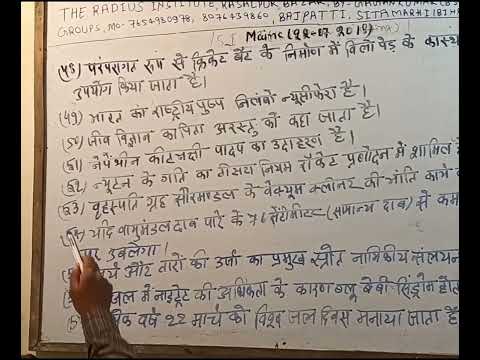 THE RADIUS INSTITUTE, RASALPUR BAZAR, BY- GAUTAM KUMAR
GROUPS, MO- 7654930978, 8076439860, BAJPATTI, SITAMARHI (BIHAR
SI Mains (22-07-2018)
(48) परंपरागत रूप से क्रिकेट बैट के निर्माण में विलो पेड़ के काष्ठ
उपयोग किया जाता है।
(49) भारत का राष्ट्रीय पुष्प निलंबो न्यूसीफेरा है।
(50) जीव विज्ञान का पिता अरस्तु को कहा जाता है।
(51) नेपेंथीन कीटभक्षी पादप का उदाहरण है।
(52) न्यूटन के गति का तीसरा नियम रॉकेट प्रणोदन में शामिल है
(53) बृहस्पति ग्रह सौरमण्डल के वेक्यूम क्लीनर की भांति कार्य
यदि वायुमंडल दाब पारे के 76 सेंटीमीटर (सामान्य दाब) से कम
पर उबलेगा।
और तारों की उर्जा का प्रमुख स्रोत नाभिकीय संलयन
जल में नाइट्रेट की अधिकता के कारण ब्लू बेबी सिंड्रोम
वर्ष 22 मार्च को विश्व जल दिवस मनाया जाता है